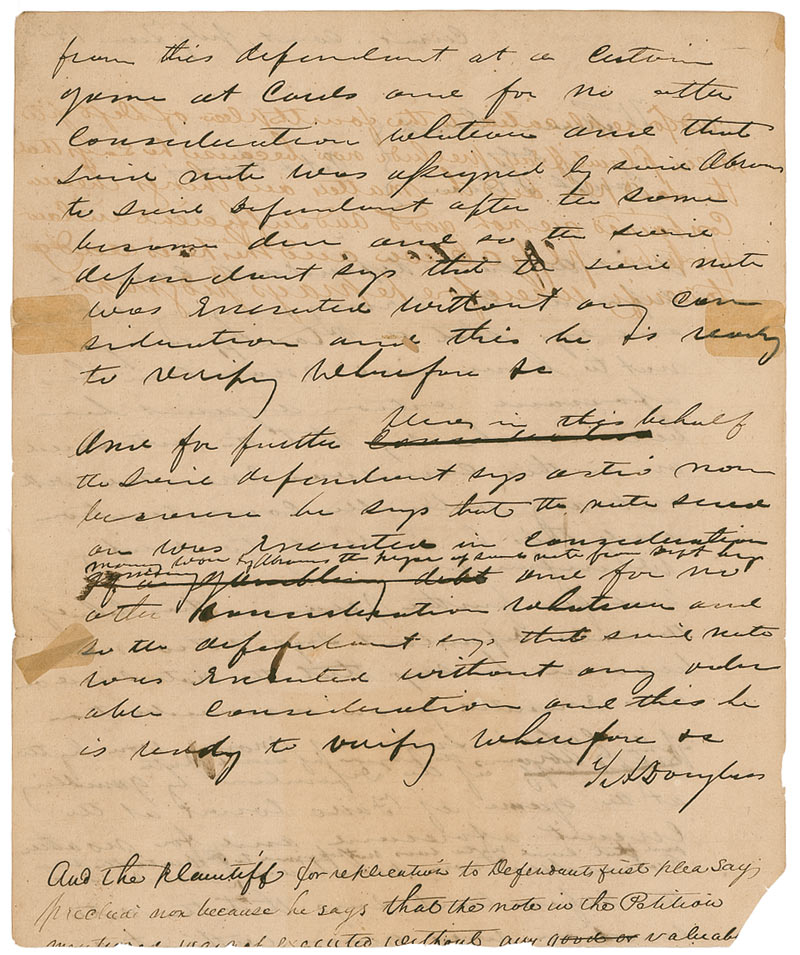 from this defendant at a certain
game at cards and for no other
consideration whatever and that
said note was assigned by said Abrams
to said Defendant after the same
become due and so the said
defendant says that the said note
was Executed without any con
sideration and this he is ready
to verify wherefore &c
And for further
pleas in this behalf
the said defendant says actio non
because he says that the note sued
on was Executed in consideration
money won by Abrams the payee of said note from
of a gambling debt and for no
other consideration whatever and
so the defendant says that said note
was Executed without any valu
able consideration and this he
is ready to verify wherefore &c
S A Douglass
And the Plaintiff for replication to Defendants first plea says
preclude non because he says that the note in the Petition
mentioned was not executed without any good or valuable